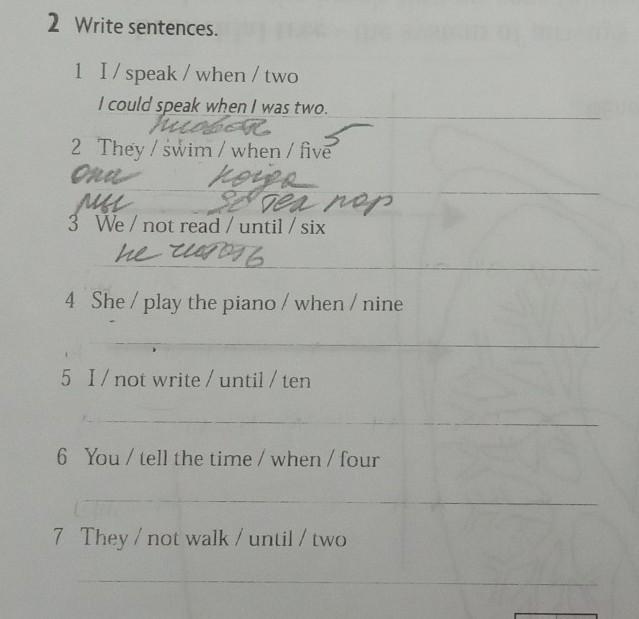 2 Write sentences.
1 I / speak / when / two
I could speak when I was two.
плавать
2 They / swim / when / five 5
они когда
мы до тех пор
3 We / not read / until / six
не читать
4 She / play the piano / when / nine
5 I / not write / until / ten
6 You / tell the time / when / four
7 They / not walk / until / two